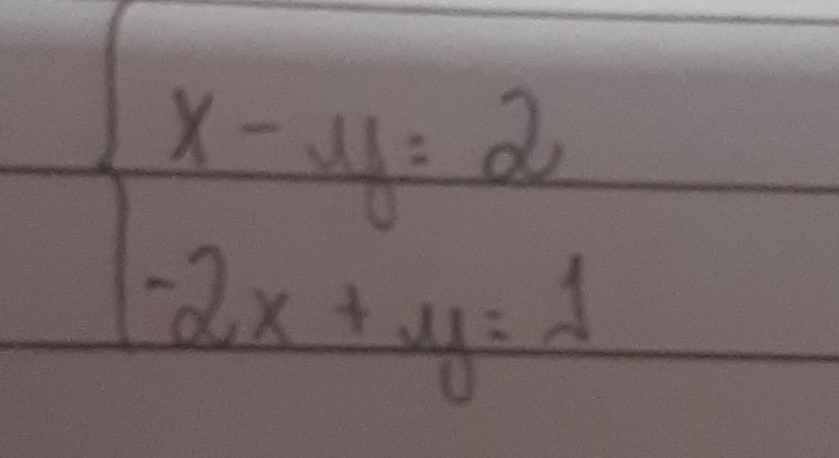 x - y = 2
-2x + y = 1